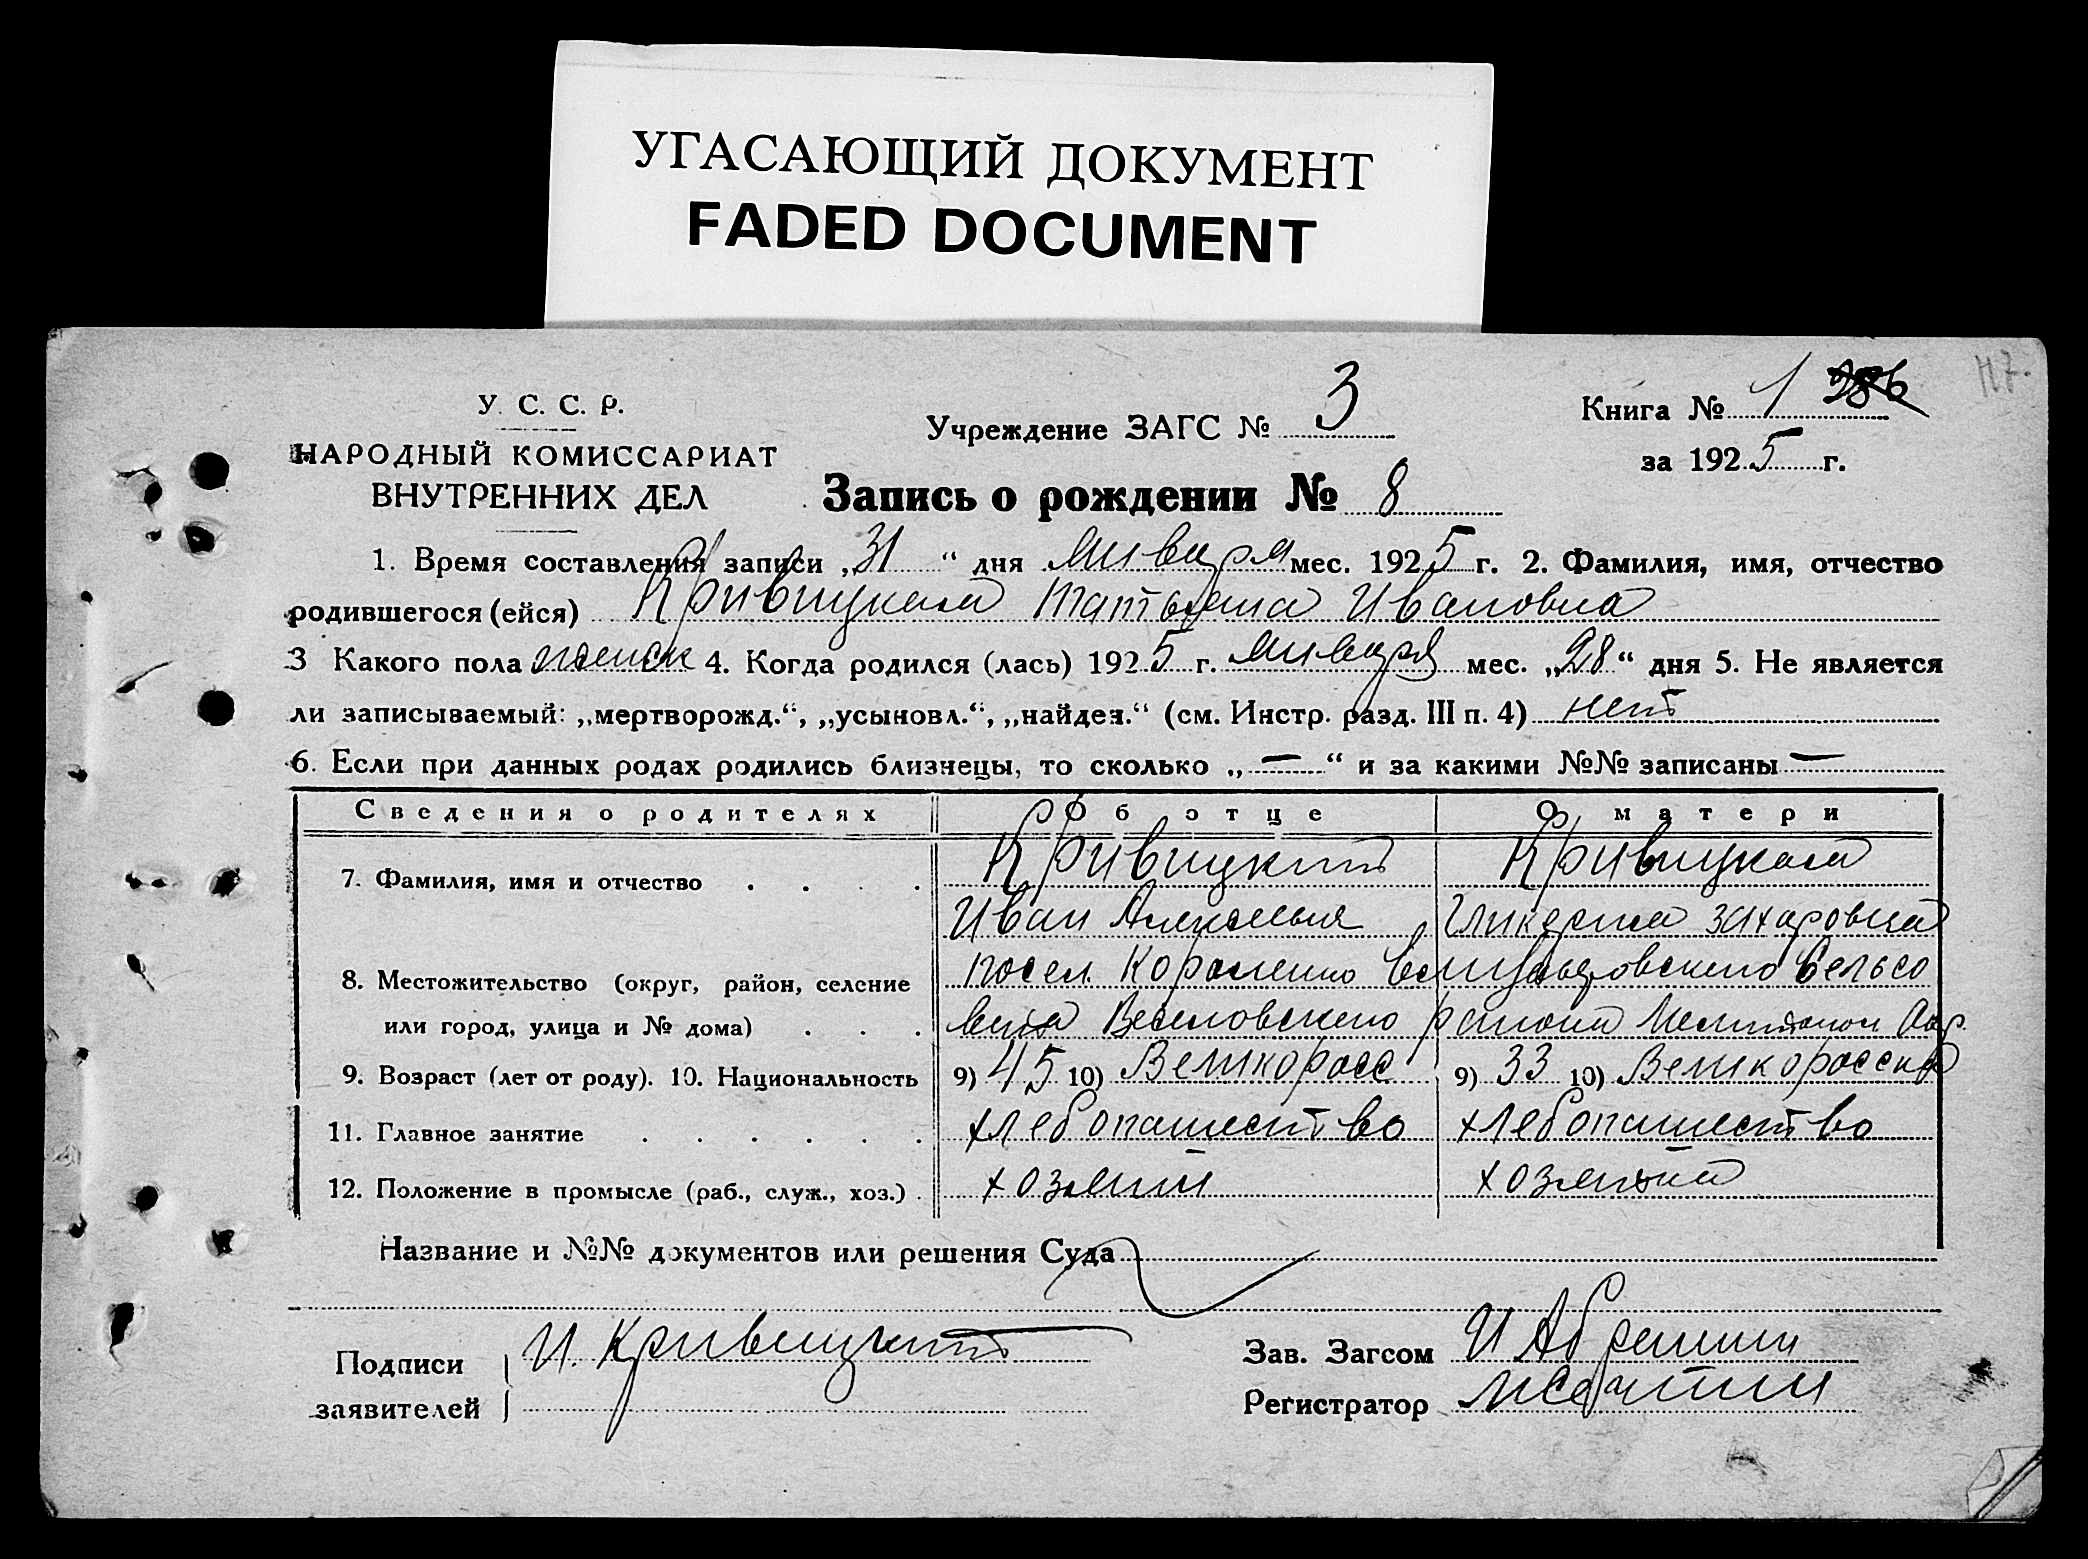 УГАСАЮЩИЙ ДОКУМЕНТ
FADED DOCUMENT
117.
У. С. С. Р.
НАРОДНЫЙ КОМИССАРИАТ
ВНУТРЕННИХ ДЕЛ
Учреждение ЗАГС № 3
Книга № 1 286
за 1925 г.
Запись о рождении № 8
1. Время составления записи „31“ дня Января мес. 1925 г. 2. Фамилия, имя, отчество
родившегося (ейся) Кривицкая Татьяна Ивановна
3 Какого пола женск 4. Когда родился (лась) 1925 г. Января мес. „28“ дня 5. Не является
ли записываемый: „мертворожд.“, „усыновл.“, „найден.“ (см. Инстр. разд. III п. 4) нет
6. Если при данных родах родились близнецы, то сколько „—“ и за какими №№ записаны —
Сведения о родителях Об отце О матери
7. Фамилия, имя и отчество Кривицкий Кривицкая
Иван Гликерия Захаровна
8. Местожительство (округ, район, селение посел. сельсо
или город, улица и № дома) вета Веселовского района Окр.
9. Возраст (лет от роду). 10. Национальность 9) 45 10) Великоросс 9) 33 10) Великоросска
11. Главное занятие хлебопашество хлебопашество
12. Положение в промысле (раб., служ., хоз.) хозяин хозяйка
Название и №№ документов или решения Суда
Подписи заявителей И. Кривицкий
Зав. Загсом
Регистратор